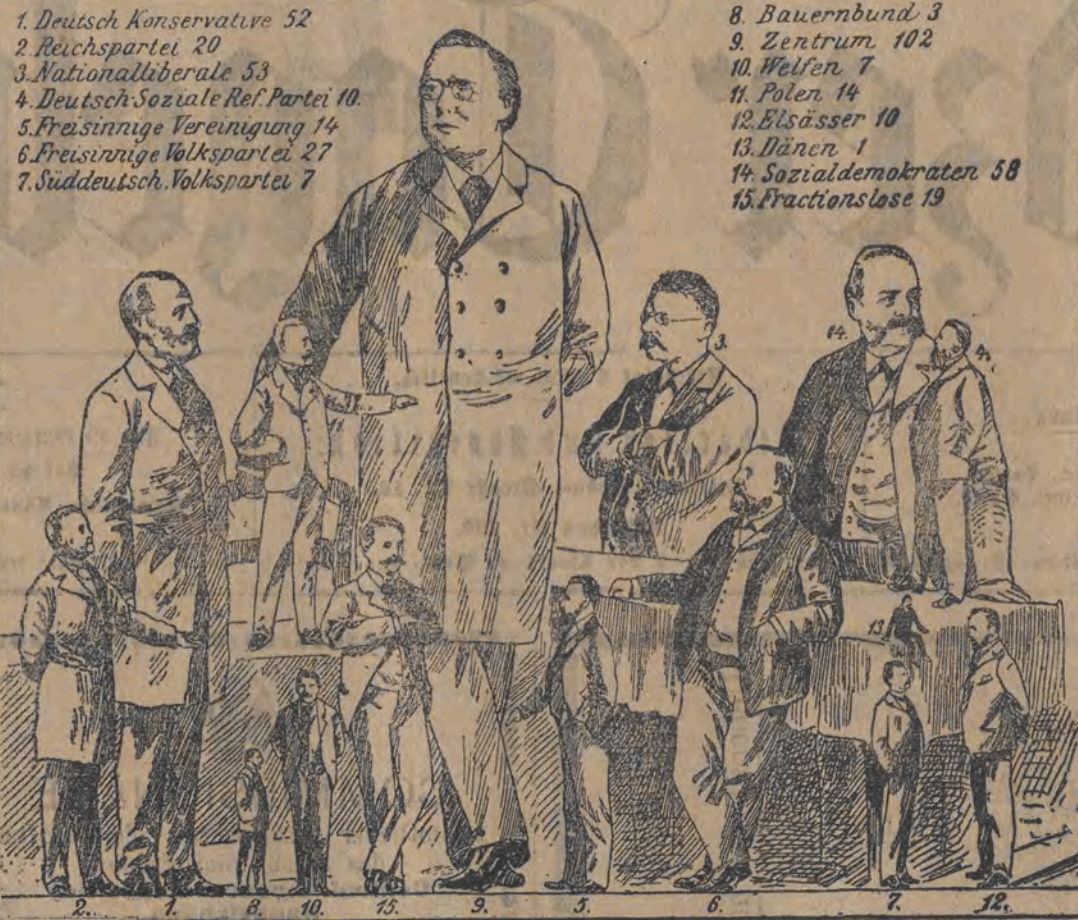 1. Deutsch Konservative 52
2. Reichspartei 20
3. Nationalliberale 53
4. Deutsch-Soziale Ref. Partei 10.
5. Freisinnige Vereinigung 14
6. Freisinnige Volkspartei 27
7. Süddeutsch. Volkspartei 7
8. Bauernbund 3
9. Zentrum 102
10. Welfen 7
11. Polen 14
12. Elsässer 10
13. Dänen 1
14. Sozialdemokraten 58
15. Fractionslose 19
3.
14.
4.
11.
13.
2. 1. 8. 10. 15. 9. 5. 6. 7. 12.